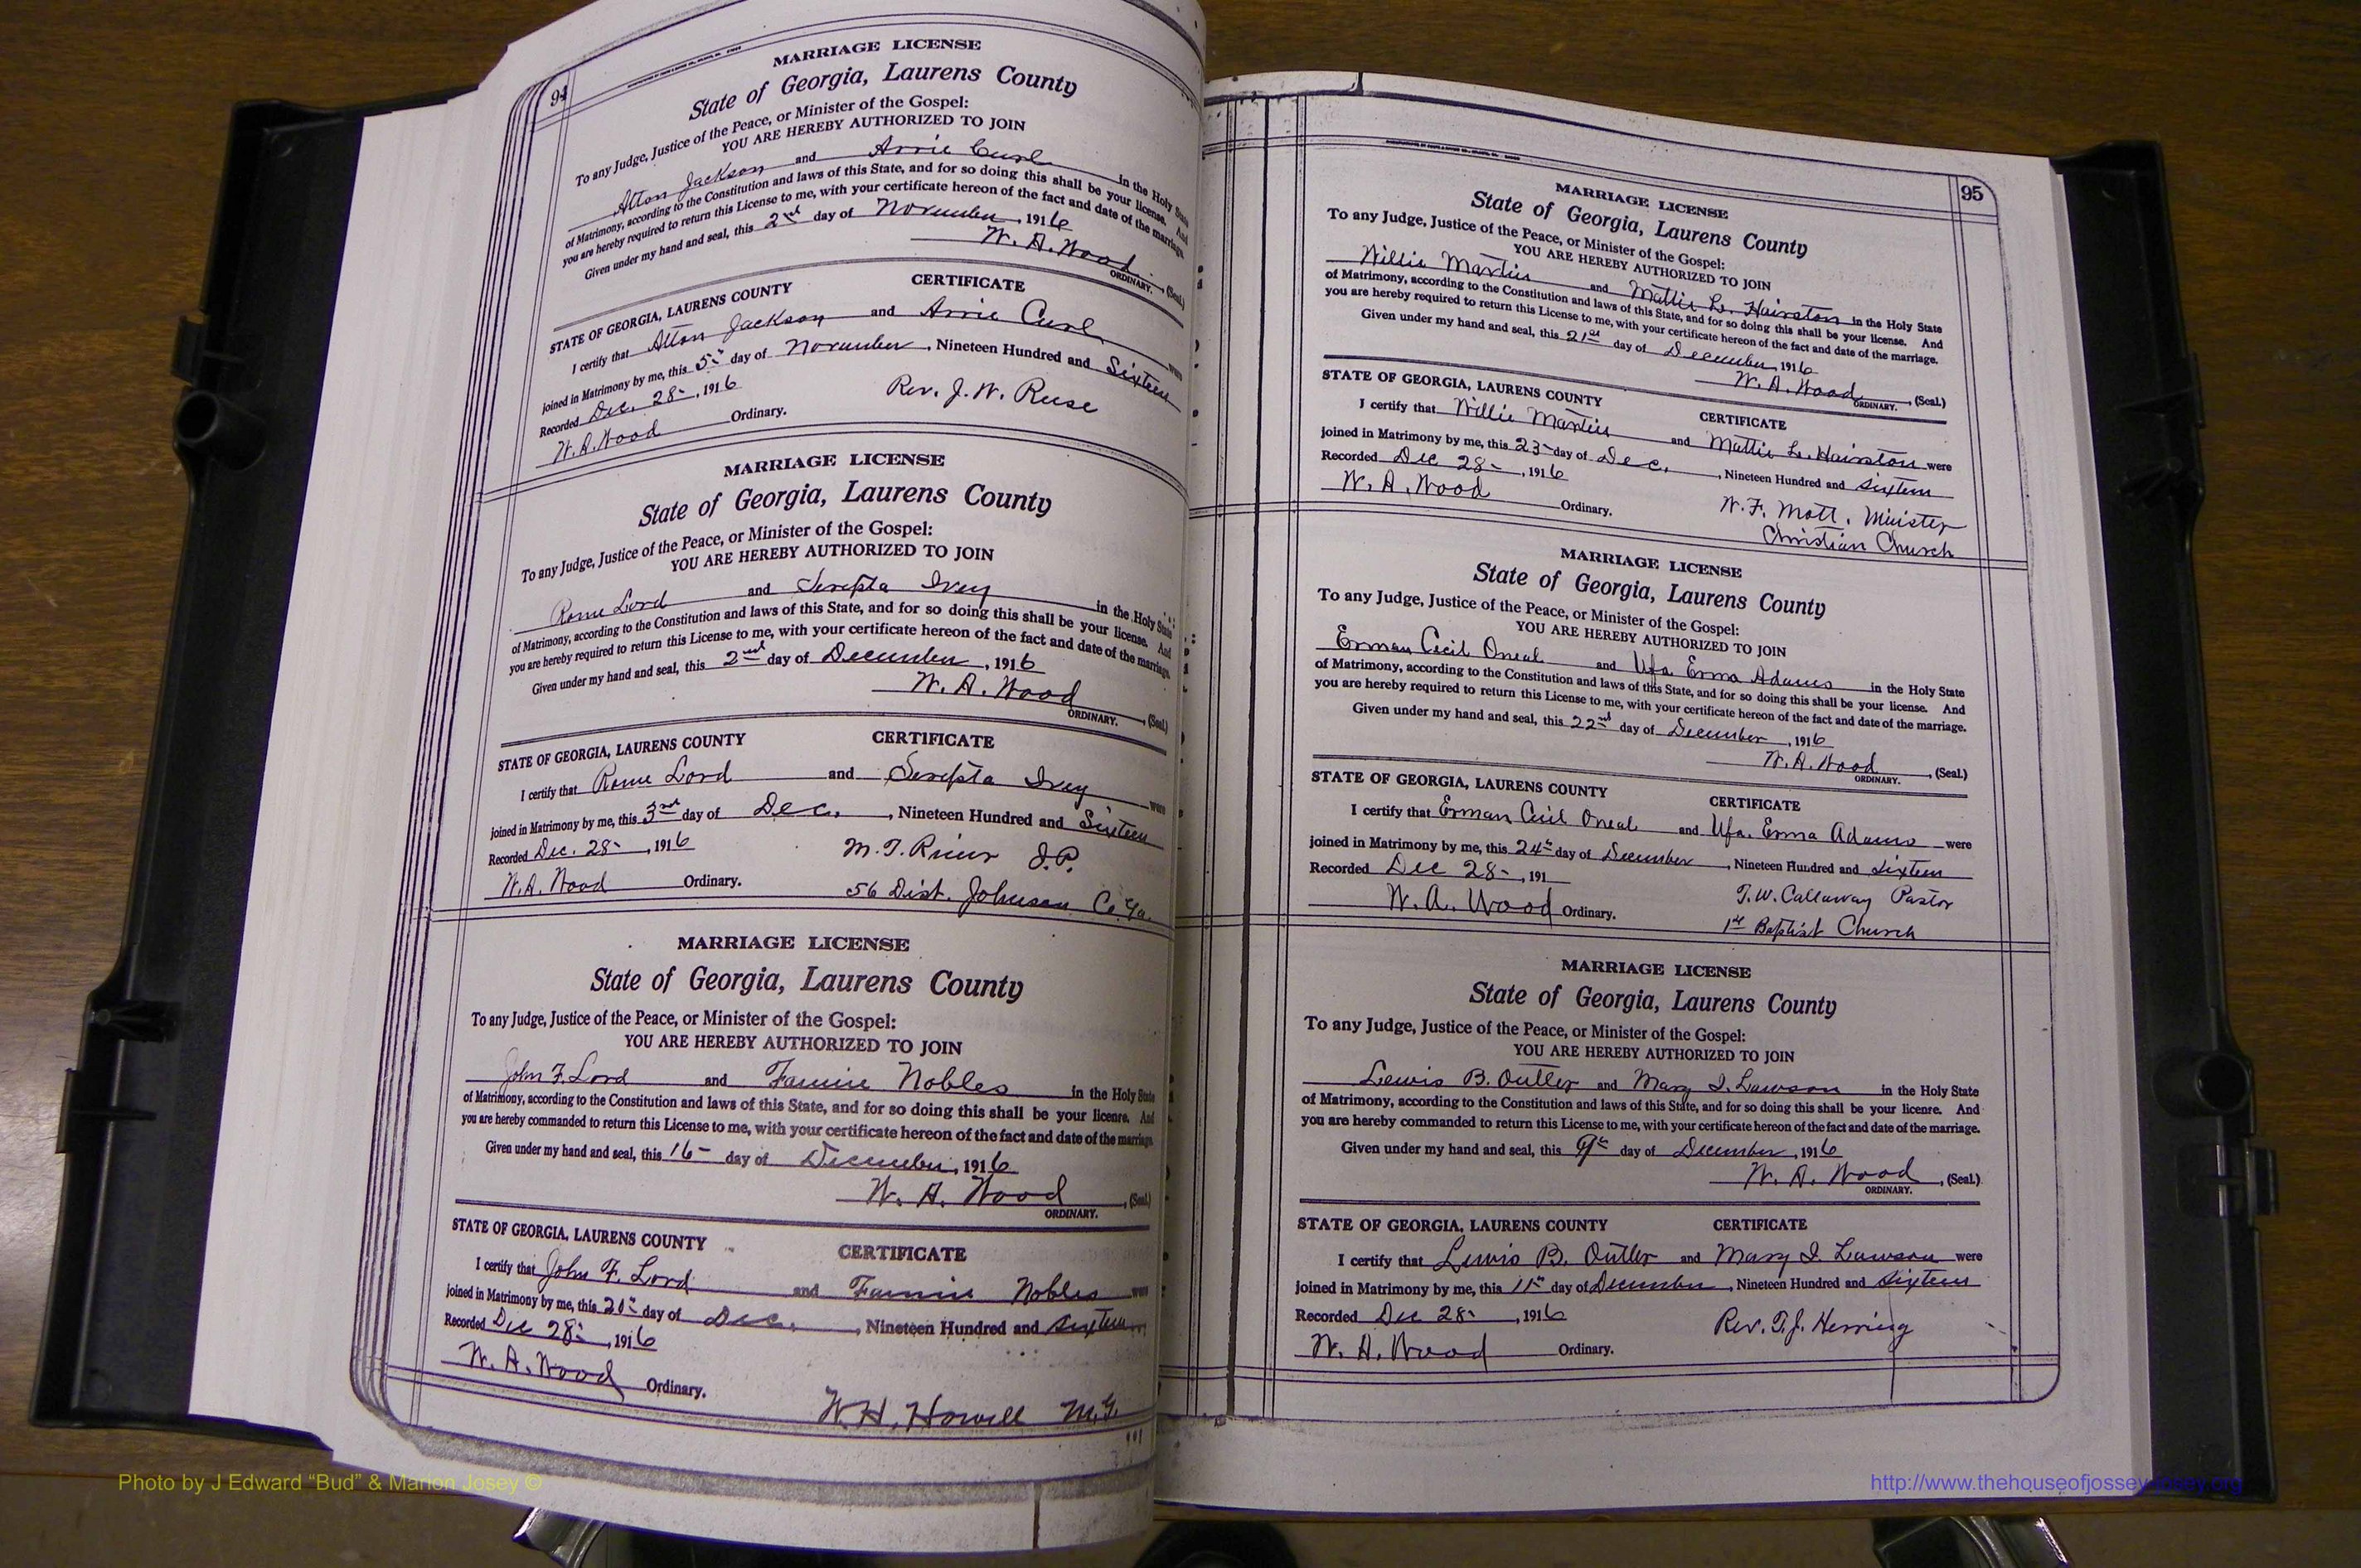 94
MARRIAGE LICENSE
State of Georgia, Laurens County
To any Judge, Justice of the Peace, or Minister of the Gospel:
YOU ARE HEREBY AUTHORIZED TO JOIN
Atton Jackson and Arrie Curl in the Holy State
of Matrimony, according to the Constitution and laws of this State, and for so doing this shall be your license. And
you are hereby required to return this License to me, with your certificate hereon of the fact and date of the marriage.
Given under my hand and seal, this 2nd day of November, 1916
W. A. Wood, (Seal)
ORDINARY.
CERTIFICATE
STATE OF GEORGIA, LAURENS COUNTY
I certify that Atton Jackson and Arrie Curl were
joined in Matrimony by me, this 5" day of November, Nineteen Hundred and Sixteen
Recorded Dec. 28-, 1916
Rev. J. W. Ruse
W. A. Wood Ordinary.
MARRIAGE LICENSE
State of Georgia, Laurens County
To any Judge, Justice of the Peace, or Minister of the Gospel:
YOU ARE HEREBY AUTHORIZED TO JOIN
Rome Lord and Serepta Ivey in the Holy State
of Matrimony, according to the Constitution and laws of this State, and for so doing this shall be your license. And
you are hereby required to return this License to me, with your certificate hereon of the fact and date of the marriage.
Given under my hand and seal, this 2nd day of December, 1916
W. A. Wood, (Seal.)
ORDINARY.
CERTIFICATE
STATE OF GEORGIA, LAURENS COUNTY
I certify that Rome Lord and Serepta Ivey were
joined in Matrimony by me, this 3rd day of Dec., Nineteen Hundred and Sixteen
Recorded Dec. 28-, 1916
M. T. J.P.
W. A. Wood Ordinary.
56 Dist. Johnson Co Ga.
MARRIAGE LICENSE
State of Georgia, Laurens County
To any Judge, Justice of the Peace, or Minister of the Gospel:
YOU ARE HEREBY AUTHORIZED TO JOIN
John F. Lord and Fannie Nobles in the Holy State
of Matrimony, according to the Constitution and laws of this State, and for so doing this shall be your licenre. And
you are hereby commanded to return this License to me, with your certificate hereon of the fact and date of the marriage.
Given under my hand and seal, this 16- day of December, 1916
W. A. Wood, (Seal.)
ORDINARY.
STATE OF GEORGIA, LAURENS COUNTY
CERTIFICATE
I certify that John F. Lord and Fannie Nobles were
joined in Matrimony by me, this 20" day of Dec., Nineteen Hundred and sixteen
Recorded Dec 28-, 1916
W. A. Wood Ordinary.
W. H. Howell M.G.
95
MARRIAGE LICENSE
State of Georgia, Laurens County
To any Judge, Justice of the Peace, or Minister of the Gospel:
YOU ARE HEREBY AUTHORIZED TO JOIN
Willie Martin and Mattie L. Hairston in the Holy State
of Matrimony, according to the Constitution and laws of this State, and for so doing this shall be your license. And
you are hereby required to return this License to me, with your certificate hereon of the fact and date of the marriage.
Given under my hand and seal, this 21st day of December, 1916
W. A. Wood, (Seal.)
ORDINARY.
STATE OF GEORGIA, LAURENS COUNTY
CERTIFICATE
I certify that Willie Martin and Mattie L. Hairston were
joined in Matrimony by me, this 23- day of Dec., Nineteen Hundred and sixteen
Recorded Dec 28-, 1916
W. A. Wood Ordinary.
W. F. Mott, Minister
Christian Church
MARRIAGE LICENSE
State of Georgia, Laurens County
To any Judge, Justice of the Peace, or Minister of the Gospel:
YOU ARE HEREBY AUTHORIZED TO JOIN
Erman Cecil Oneal and Ufa Erma Adams in the Holy State
of Matrimony, according to the Constitution and laws of this State, and for so doing this shall be your license. And
you are hereby required to return this License to me, with your certificate hereon of the fact and date of the marriage.
Given under my hand and seal, this 22nd day of December, 1916
W. A. Wood, (Seal.)
ORDINARY.
STATE OF GEORGIA, LAURENS COUNTY
CERTIFICATE
I certify that Erman Cecil Oneal and Ufa. Erma Adams were
joined in Matrimony by me, this 24th day of December, Nineteen Hundred and sixteen
Recorded Dec 28-, 191
T. W. Callaway Pastor
W. A. Wood Ordinary.
1st Baptist Church
MARRIAGE LICENSE
State of Georgia, Laurens County
To any Judge, Justice of the Peace, or Minister of the Gospel:
YOU ARE HEREBY AUTHORIZED TO JOIN
Lewis B. Outler and Mary I. Lawson in the Holy State
of Matrimony, according to the Constitution and laws of this State, and for so doing this shall be your licenre. And
you are hereby commanded to return this License to me, with your certificate hereon of the fact and date of the marriage.
Given under my hand and seal, this 9th day of December, 1916
W. A. Wood, (Seal.)
ORDINARY.
STATE OF GEORGIA, LAURENS COUNTY
CERTIFICATE
I certify that Lewis B. Outler and Mary I. Lawson were
joined in Matrimony by me, this 11th day of December, Nineteen Hundred and sixteen
Recorded Dec 28-, 1916
Rev. T. J. Herring
W. A. Wood Ordinary.
Photo by J Edward “Bud” & Marion Josey ©
http://www.thehouseofjossey-josey.org